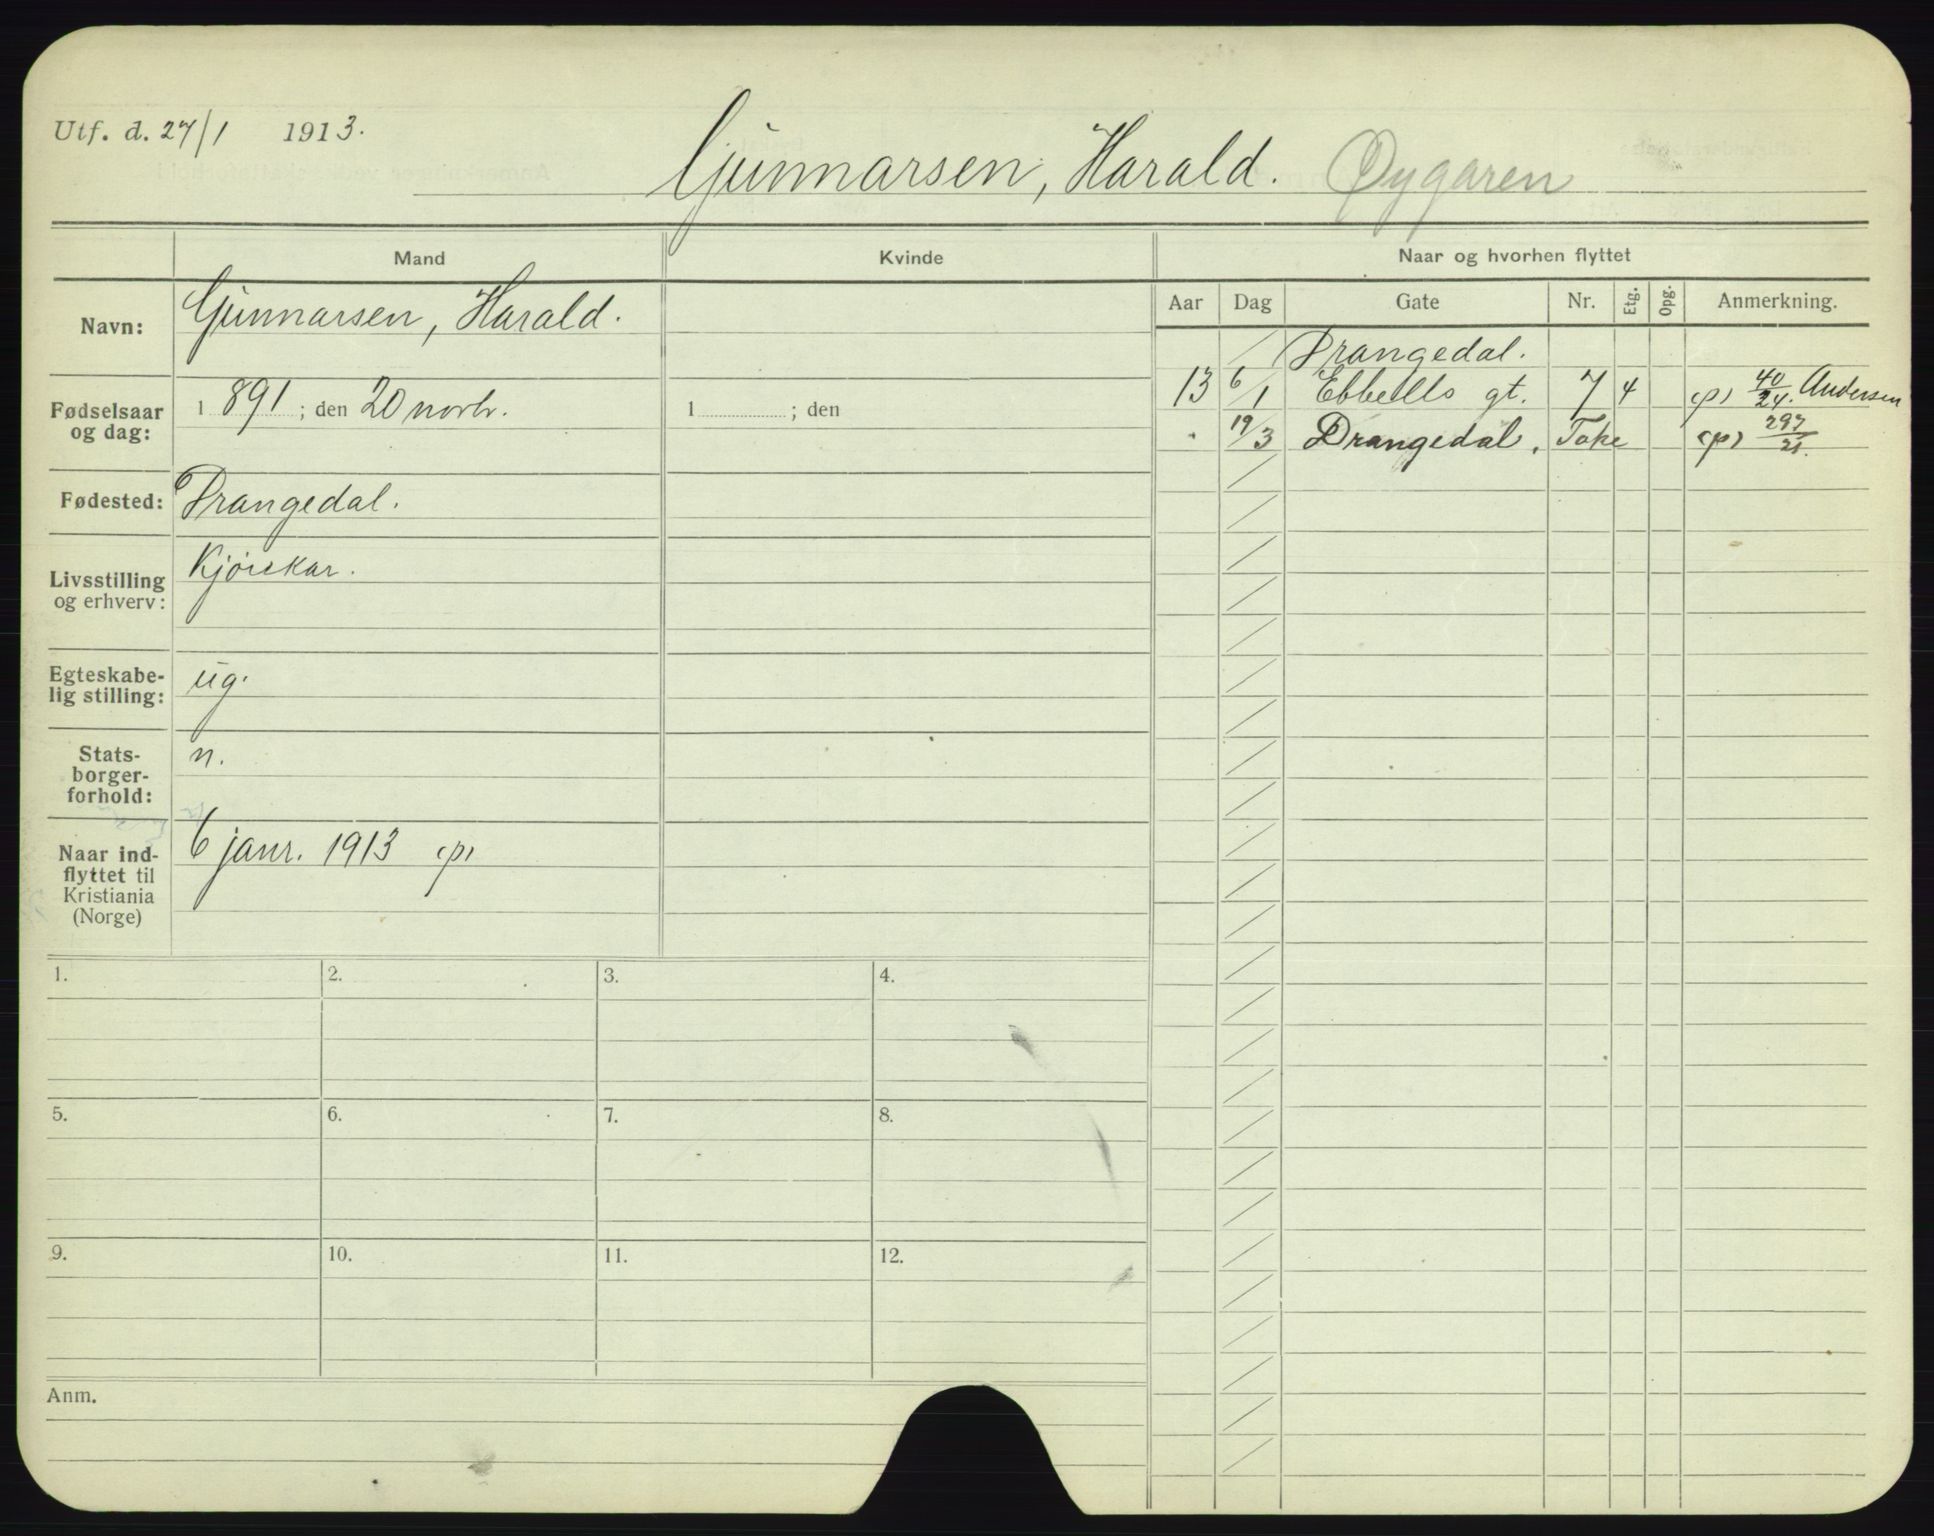 Utf. d. 27/1 1913.
Gunnarsen, Harald. Øygaren
Mand Kvinde Naar og hvorhen flyttet
Aar Dag Gate Nr. Etg. Opg. Anmerkning.
Navn: Gunnarsen, Harald.
Drangedal.
13 6/1 Ebbells gt. 7 4 (p) 40/24. Andersen
" 19/3 Drangedal, Toke (p) 297/21.
Fødselsaar og dag: 1891; den 20 novbr. 1 ; den
Fødested: Drangedal.
Livsstilling og erhverv: Kjørekar.
Egteskabe-
lig stilling: ug.
Stats-
borger-
forhold: n.
Naar ind-
flyttet til
Kristiania
(Norge) 6 janr. 1913 (p)
1. 2. 3. 4.
5. 6. 7. 8.
9. 10. 11. 12.
Anm.